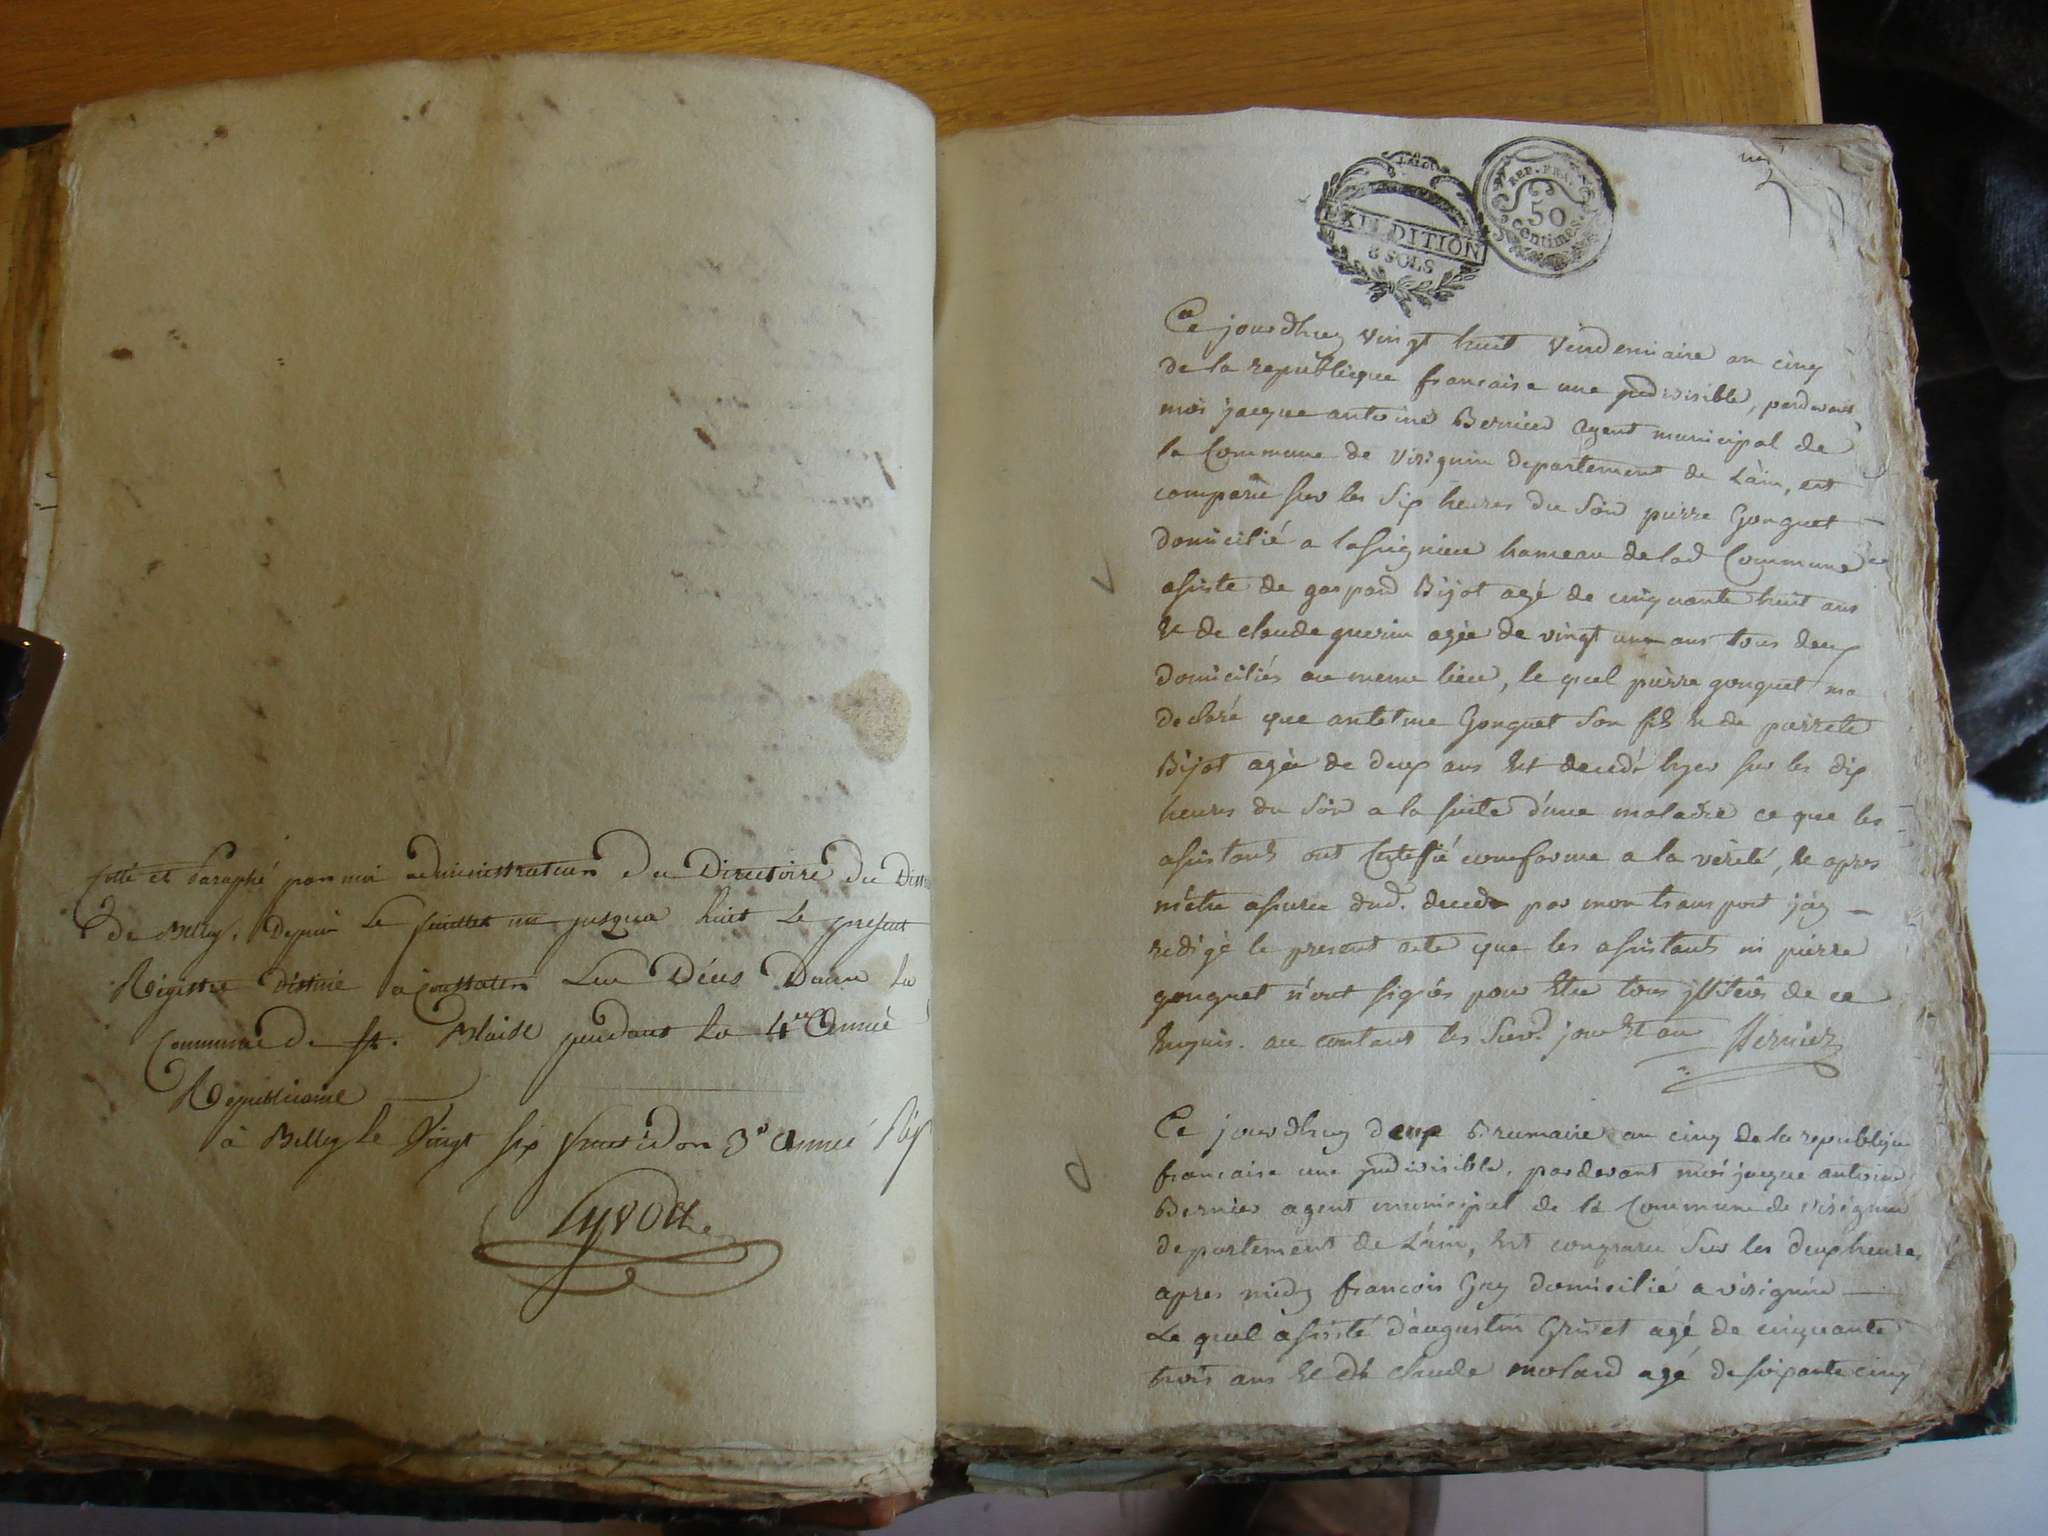 Cotté et Paraphé par moi administrateur du Directoire du Distr
de Belley. Depuis le feuillet un jusqua huit le present
Registre destiné a constater Les Décés Dans la
Commune de St. Blaise pendant la 4eme Année
Republicaine
à Belley le Vingt six fructidor 3e Année Rép
EXPEDITION
8 SOLS
REP. FRA.
50
centimes
Ce jourdhuy vingt huit Vendemiaire an cinq
de la republique francaise une jndivisible, pardevant
moi jacque antoine Bernier agent municipal de
la Commune de virignin departement de Láin, est
comparu sur les six heures du soir pierre Gonguet
domicilié a hameau de lad Commune
assisté de gaspard Bijot agé de cinquante huit ans
Et de claude guerin agée de vingt un ans tous deux
domiciliés au meme lieu, le quel pierre gonguet ma
declaré que antelme Gonguet son fils et de pierrete
Bijot agée de deux ans Est decedé hyer sur les dix
heures du soir a la suite d'une maladie ce que les
assistants ont Certiffié conforme a la vérité, Et apres
mêtre assuré dud. deced par mon transport jay
redigé le present acte que les assistants ni pierre
gonguet n'ont signés pour Etre tous jllitérés de ce
Enquis. au contant les Susd. jour Et an Bernier
Ce jourdhuy deux Brumaire an cinq de la republique
francaise une jndivisible, pardevant moi jacque antoine
Bernier agent municipal de la Commune de virignin
departement de Láin, Est comparu sur les deux heures
apres midy francois Guy domicilié a virignin
Le quel assisté d'augustin Grivet agé de cinquante
trois ans Et de claude molard agé de soixante cinq